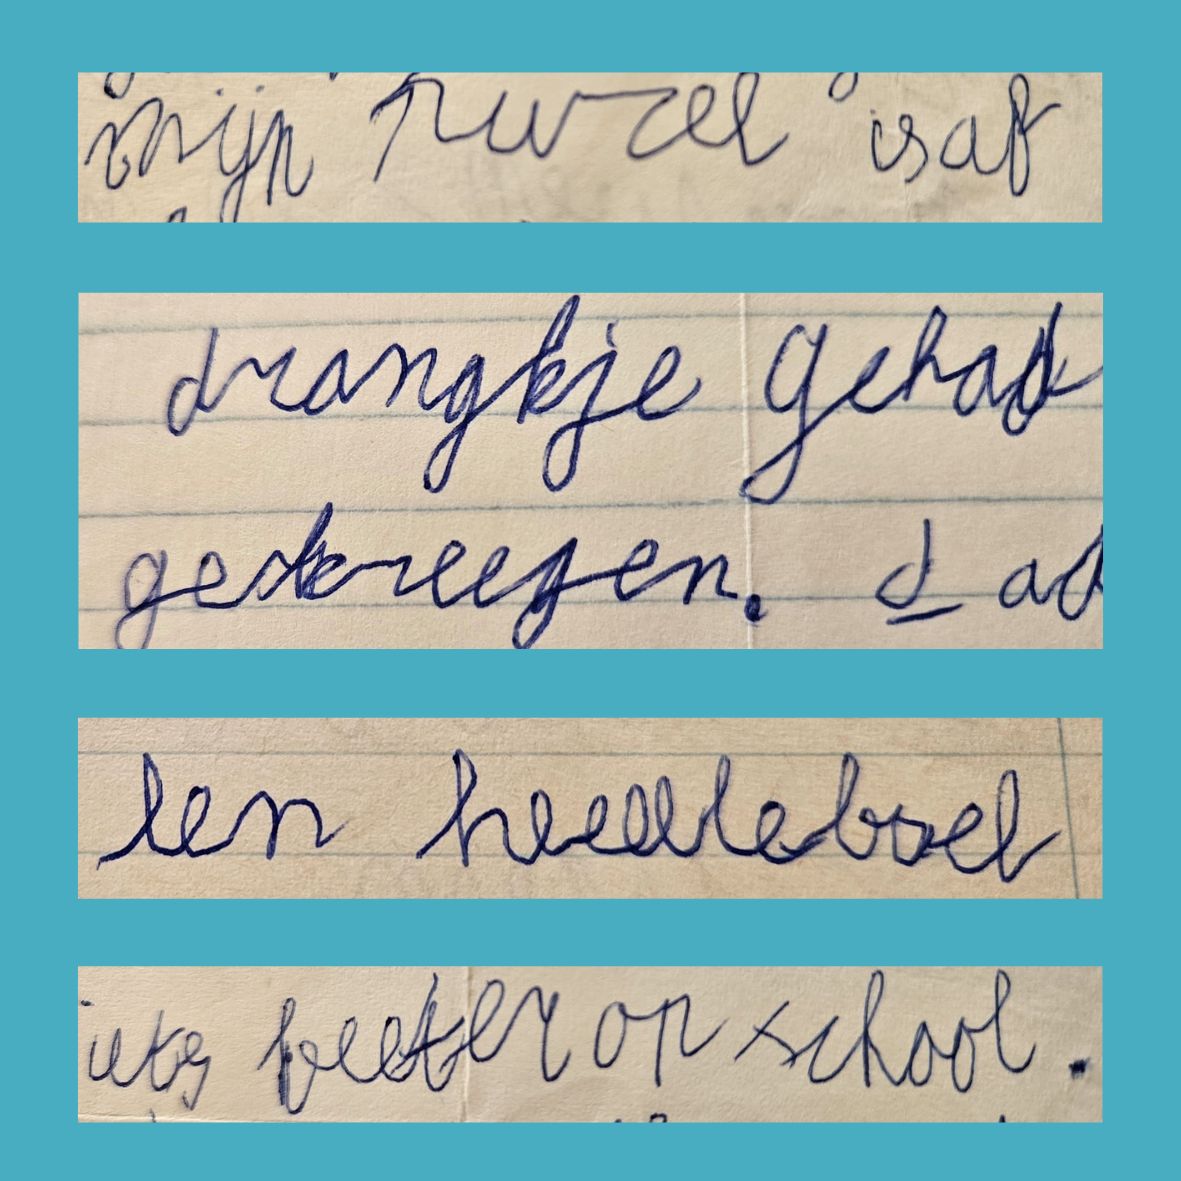 mijn purzel is af
drangkje gehad
gekreegen. d ad
een heeleboel
iets beeter op school.